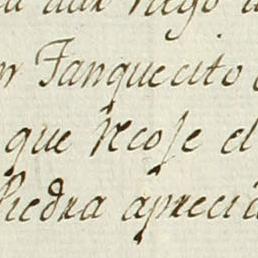 dar riego
Tanquecito
que recose el
Piedra aprecia